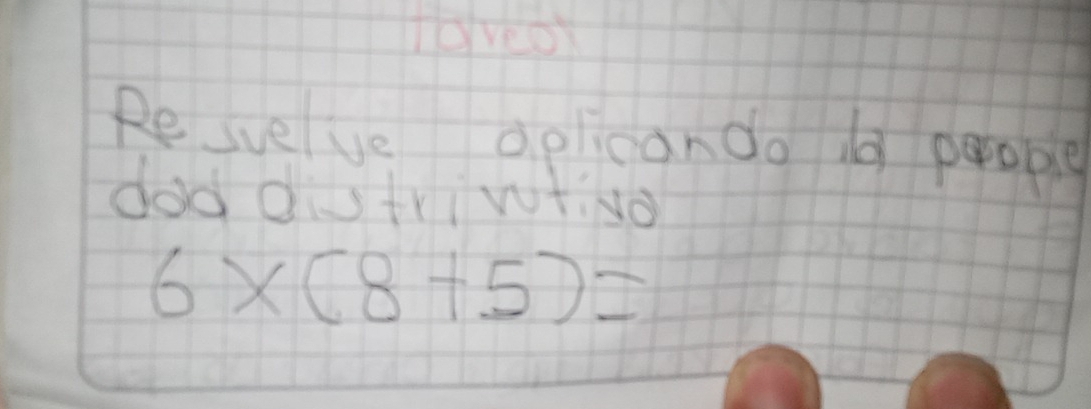 tareas
Resuelve aplicando la propie
dad distrivutiva
6 x (8 + 5) =